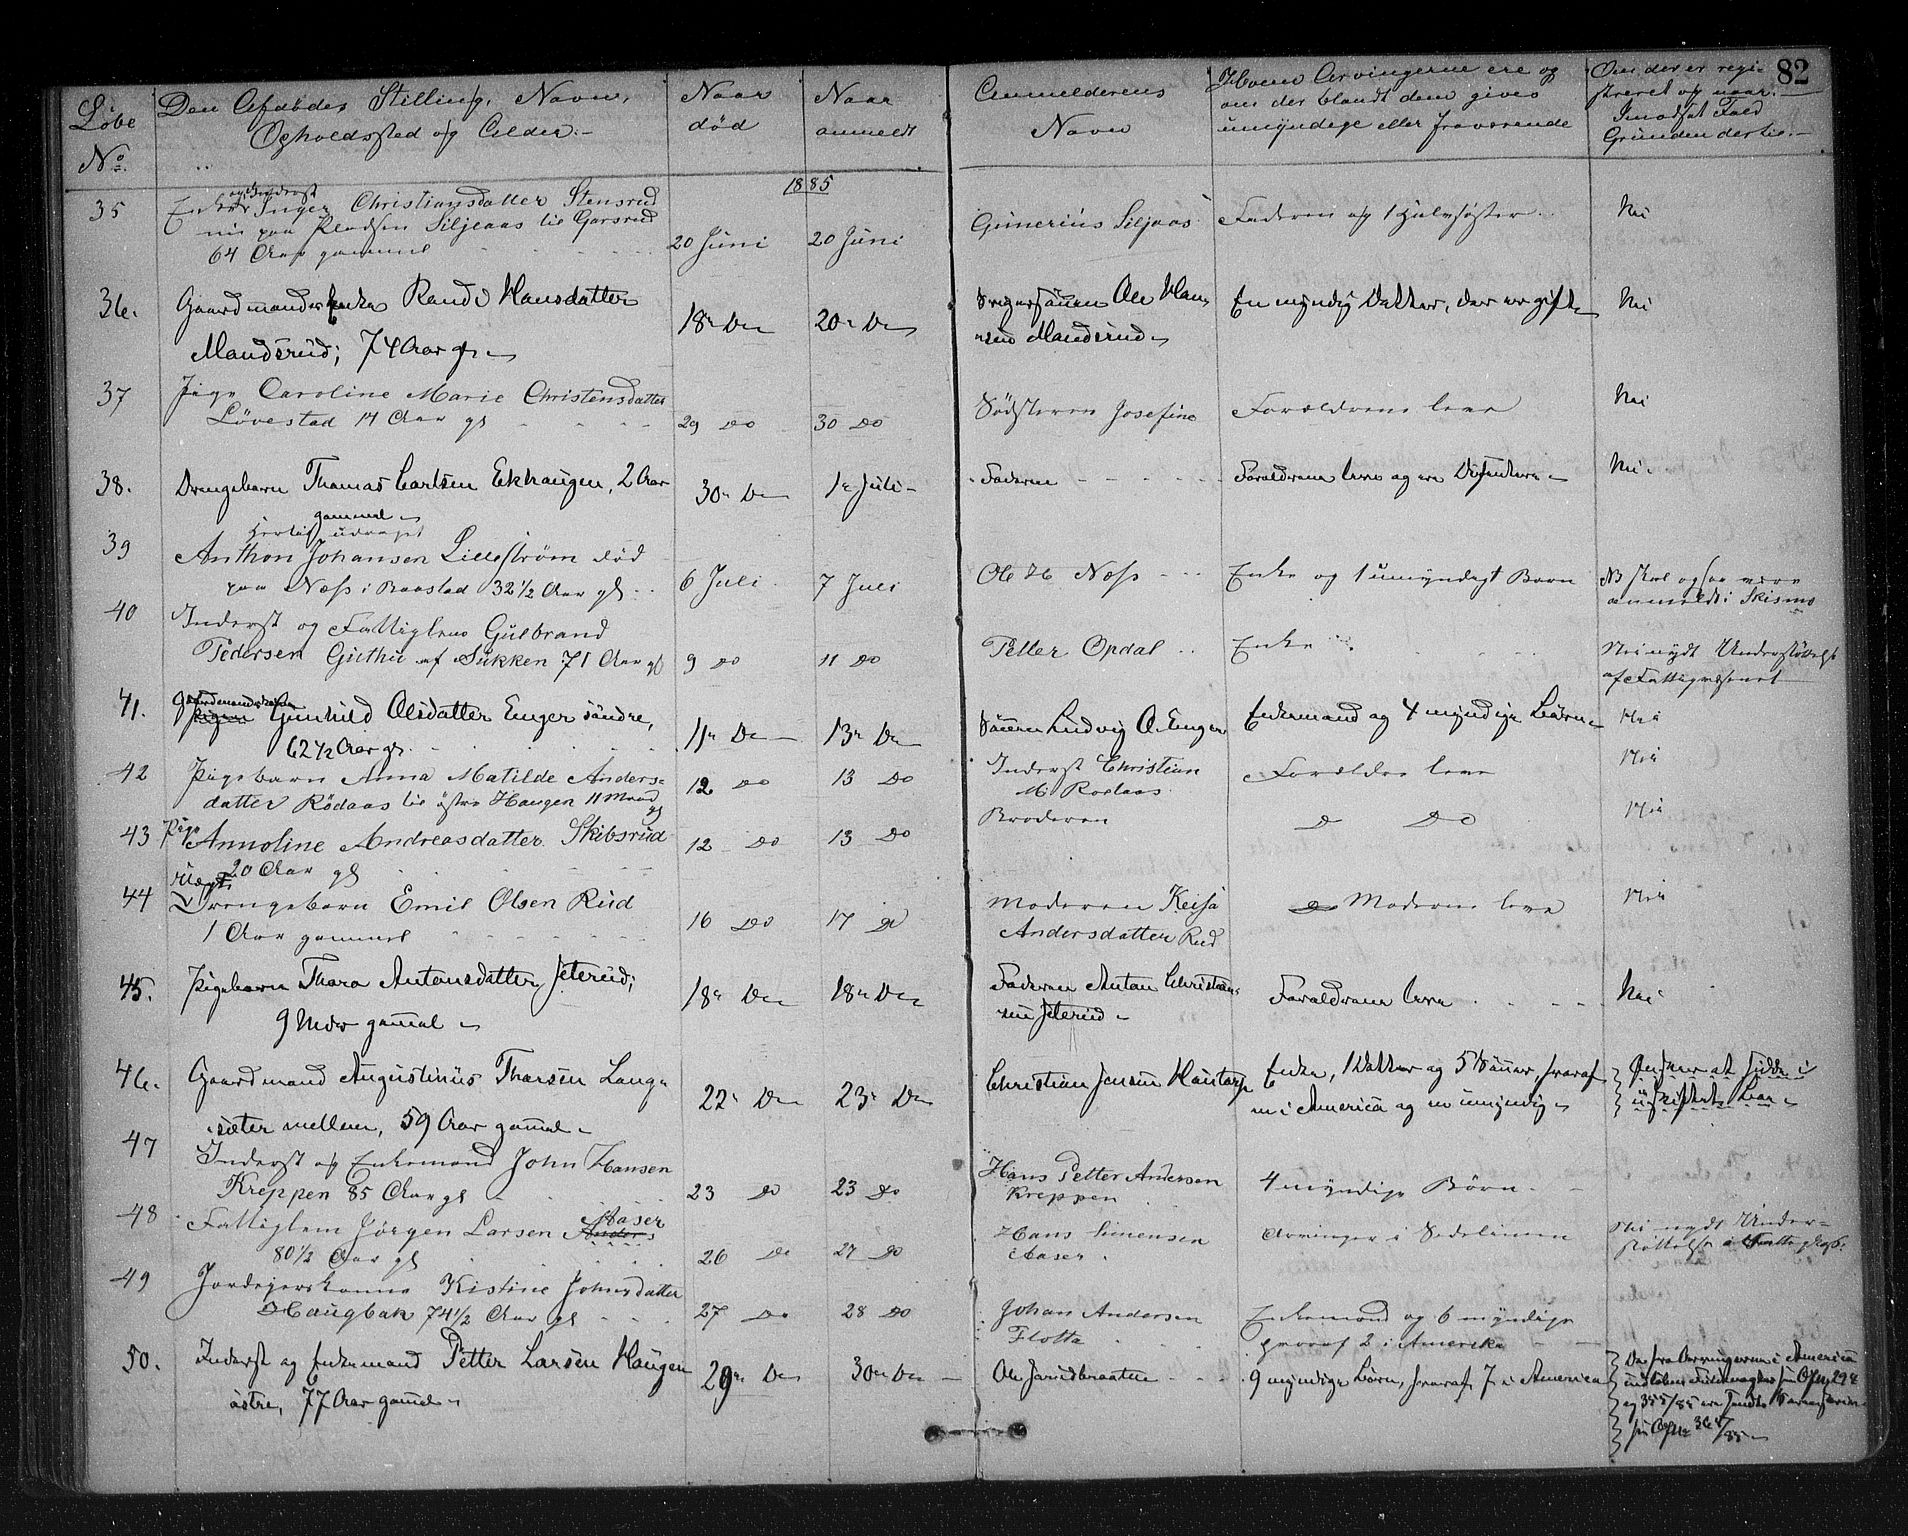 82
Löbe
No.
Den Afdødes Stilling, Navn,
Opholdssted og Alder.
Naar
død
Naar
anmeldt
Anmelderens
Navn
Hvem Arvingerne ere og
om der blandt dem gives
umyndige eller fraværende
Om der er regi-
streret og naar.
Imodsat Fald
Grunden dertil.
1885
35
Inger Christiansdatter Stensrud
nu paa Pladsen Siljeaas til Garsrud
64 Aar gammel
20 Juni
20 Juni
Gunerius Siljaas
Faderen og 1 Halvsøster
Nei
36.
Gaardmandsenke Randi Hansdatter
Mandsrud; 74 Aar gl.
18de Do
20de Do
Svigersønnen Ole Han-
sen Mandsrud
En myndig Datter, der er gift
Nei
37
Pige Caroline Marie Christensdatter
Løvestad 14 Aar gl
29 Do
30 Do
Södsteren Josefine
Forældrene leve
Nei
38.
Drengebarn Thomas Carlsen Ekhaugen, 2 Aar
gammel
30te Do
1ste Juli
Faderen
Forældrene leve og ere Disentere
Nei
39
Anthon Johansen Lillestrøm død
paa Næss i Raastad 32 1/2 Aar gl
6 Juli
7 Juli
Ole H Næss
Enke og 1 umyndigt Barn
NB skal ogsaa være
anmeldt i Skismo
40
Inderst og Fattiglem Gulbrand
Pedersen Guthu af Sukken 71 Aar gl
9 Do
11 Do
Petter Opdal
Enke
Nei nydt Understøttelse
af Fattigvæsenet
41.
Gaardmandskone Gunhild Olsdatter Enger søndre,
62 1/2 Aar gl.
11te Do
13de Do
Sønnen Ludvig O. Enger
Enkemand og 4 myndige Børn
Nei
42
Pigebarn Anna Matilde Anders-
datter Rödaas til östre Haugen 11 Maand
gl
12 Do
13 Do
Inderst Christian
M. Rodaas
Forældre leve
Nei
43
Pige Annoline Andreasdatter Skibsrud
20 Aar gl
12 Do
13 Do
Broderen
Do Do
Nei
44
Uægt.
Drengebarn Emil Olsen Rud
1 Aar gammel
16 Do
17 Do
Moderen Keisa
Andersdatter Rud
Do Moderen leve
Nei
45.
Pigebarn Thora Antonsdatter Jeterud;
9 Mdr gammel
18de Do
18de Do
Faderen Anton Christian-
sen Jeterud
Forældrene leve
Nei
46.
Gaardmand Augustinus Thorsen Lang-
sæter mellem, 59 Aar gammel
22de Do
23de Do
Christian Jensen Hautorp
Enke, 1 Datter og 5 Sønner, hvoraf
en i America og en umyndig
Ønsker at sidde i
uskiftet Bo
47
Inderst og Enkemand John Hansen
Kreppen 85 Aar gl
23 Do
23 Do
Hans Petter Andersen
Kreppen
4 myndige Børn
48
Fattiglem Jørgen Larsen Aaser
80 1/2 Aar gl
26 Do
27 Do
Hans Simensen
Aaser
Arvinger i Sidelinien
Nei nydt Under-
støttelse
49
Jordejerskonne Kistine Johnsdatter
Haugbak 74 1/2 Aar gl
27 Do
28 Do
Johan Andersen
Flotta
Enkemand og 6 myndige
hvoraf 2 i Amerika
50.
Inderst og Enkemand Petter Larsen Haugen
østre, 77 Aar gammel
29de Do
30te Do
Ole Jarudbraaten
9 myndige Børn, hvoraf 7 i America
De fra Arvingerne i America
indløbne Fuldmagter
og 355/85 ere sendte